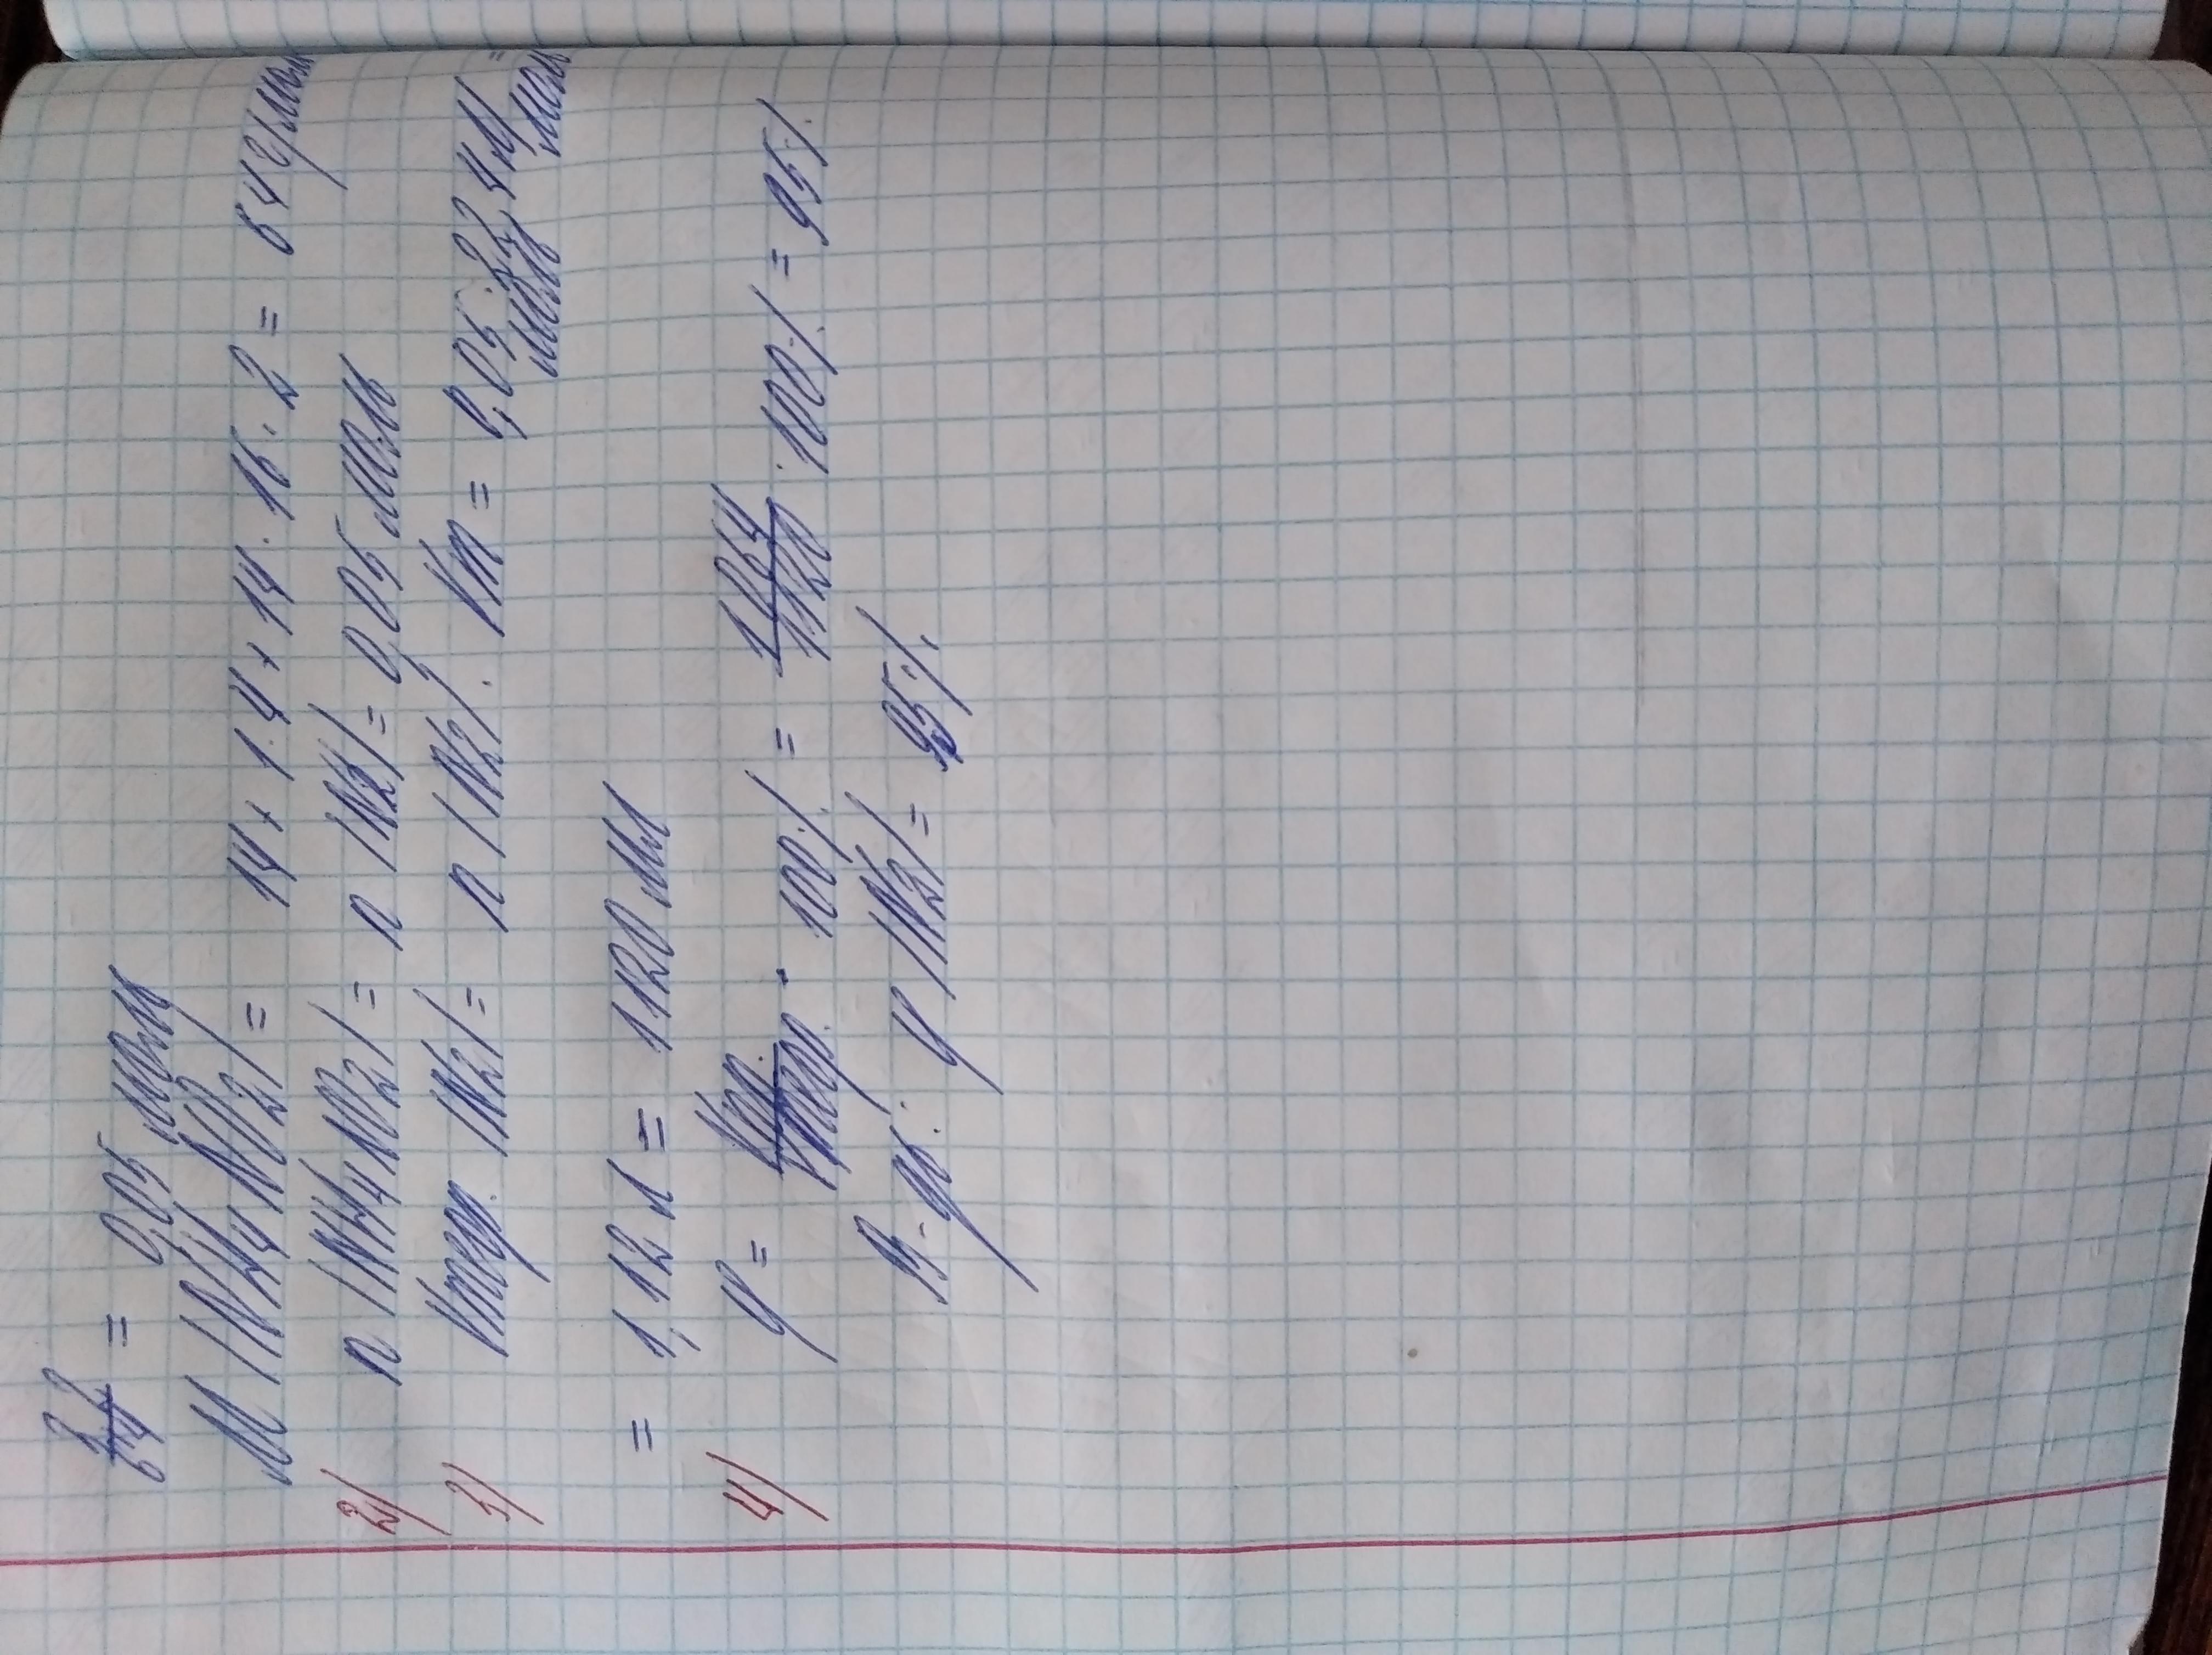 3,2/64 = 0,05 моль
M (NH4NO2) = 14 + 1 · 4 + 14 · 16 · 2 = 64 г/моль
2) n (NH4NO2) = n (N2) = 0,05 моль
3) Vтеор. (N2) = n (N2) · Vm = 0,05 моль · 22,4 л/моль =
= 1,12 л = 1120 мл
4) φ = Vпр./Vтеор. · 100% = 1064/1120 · 100% = 95%
φ (N2) = 95%